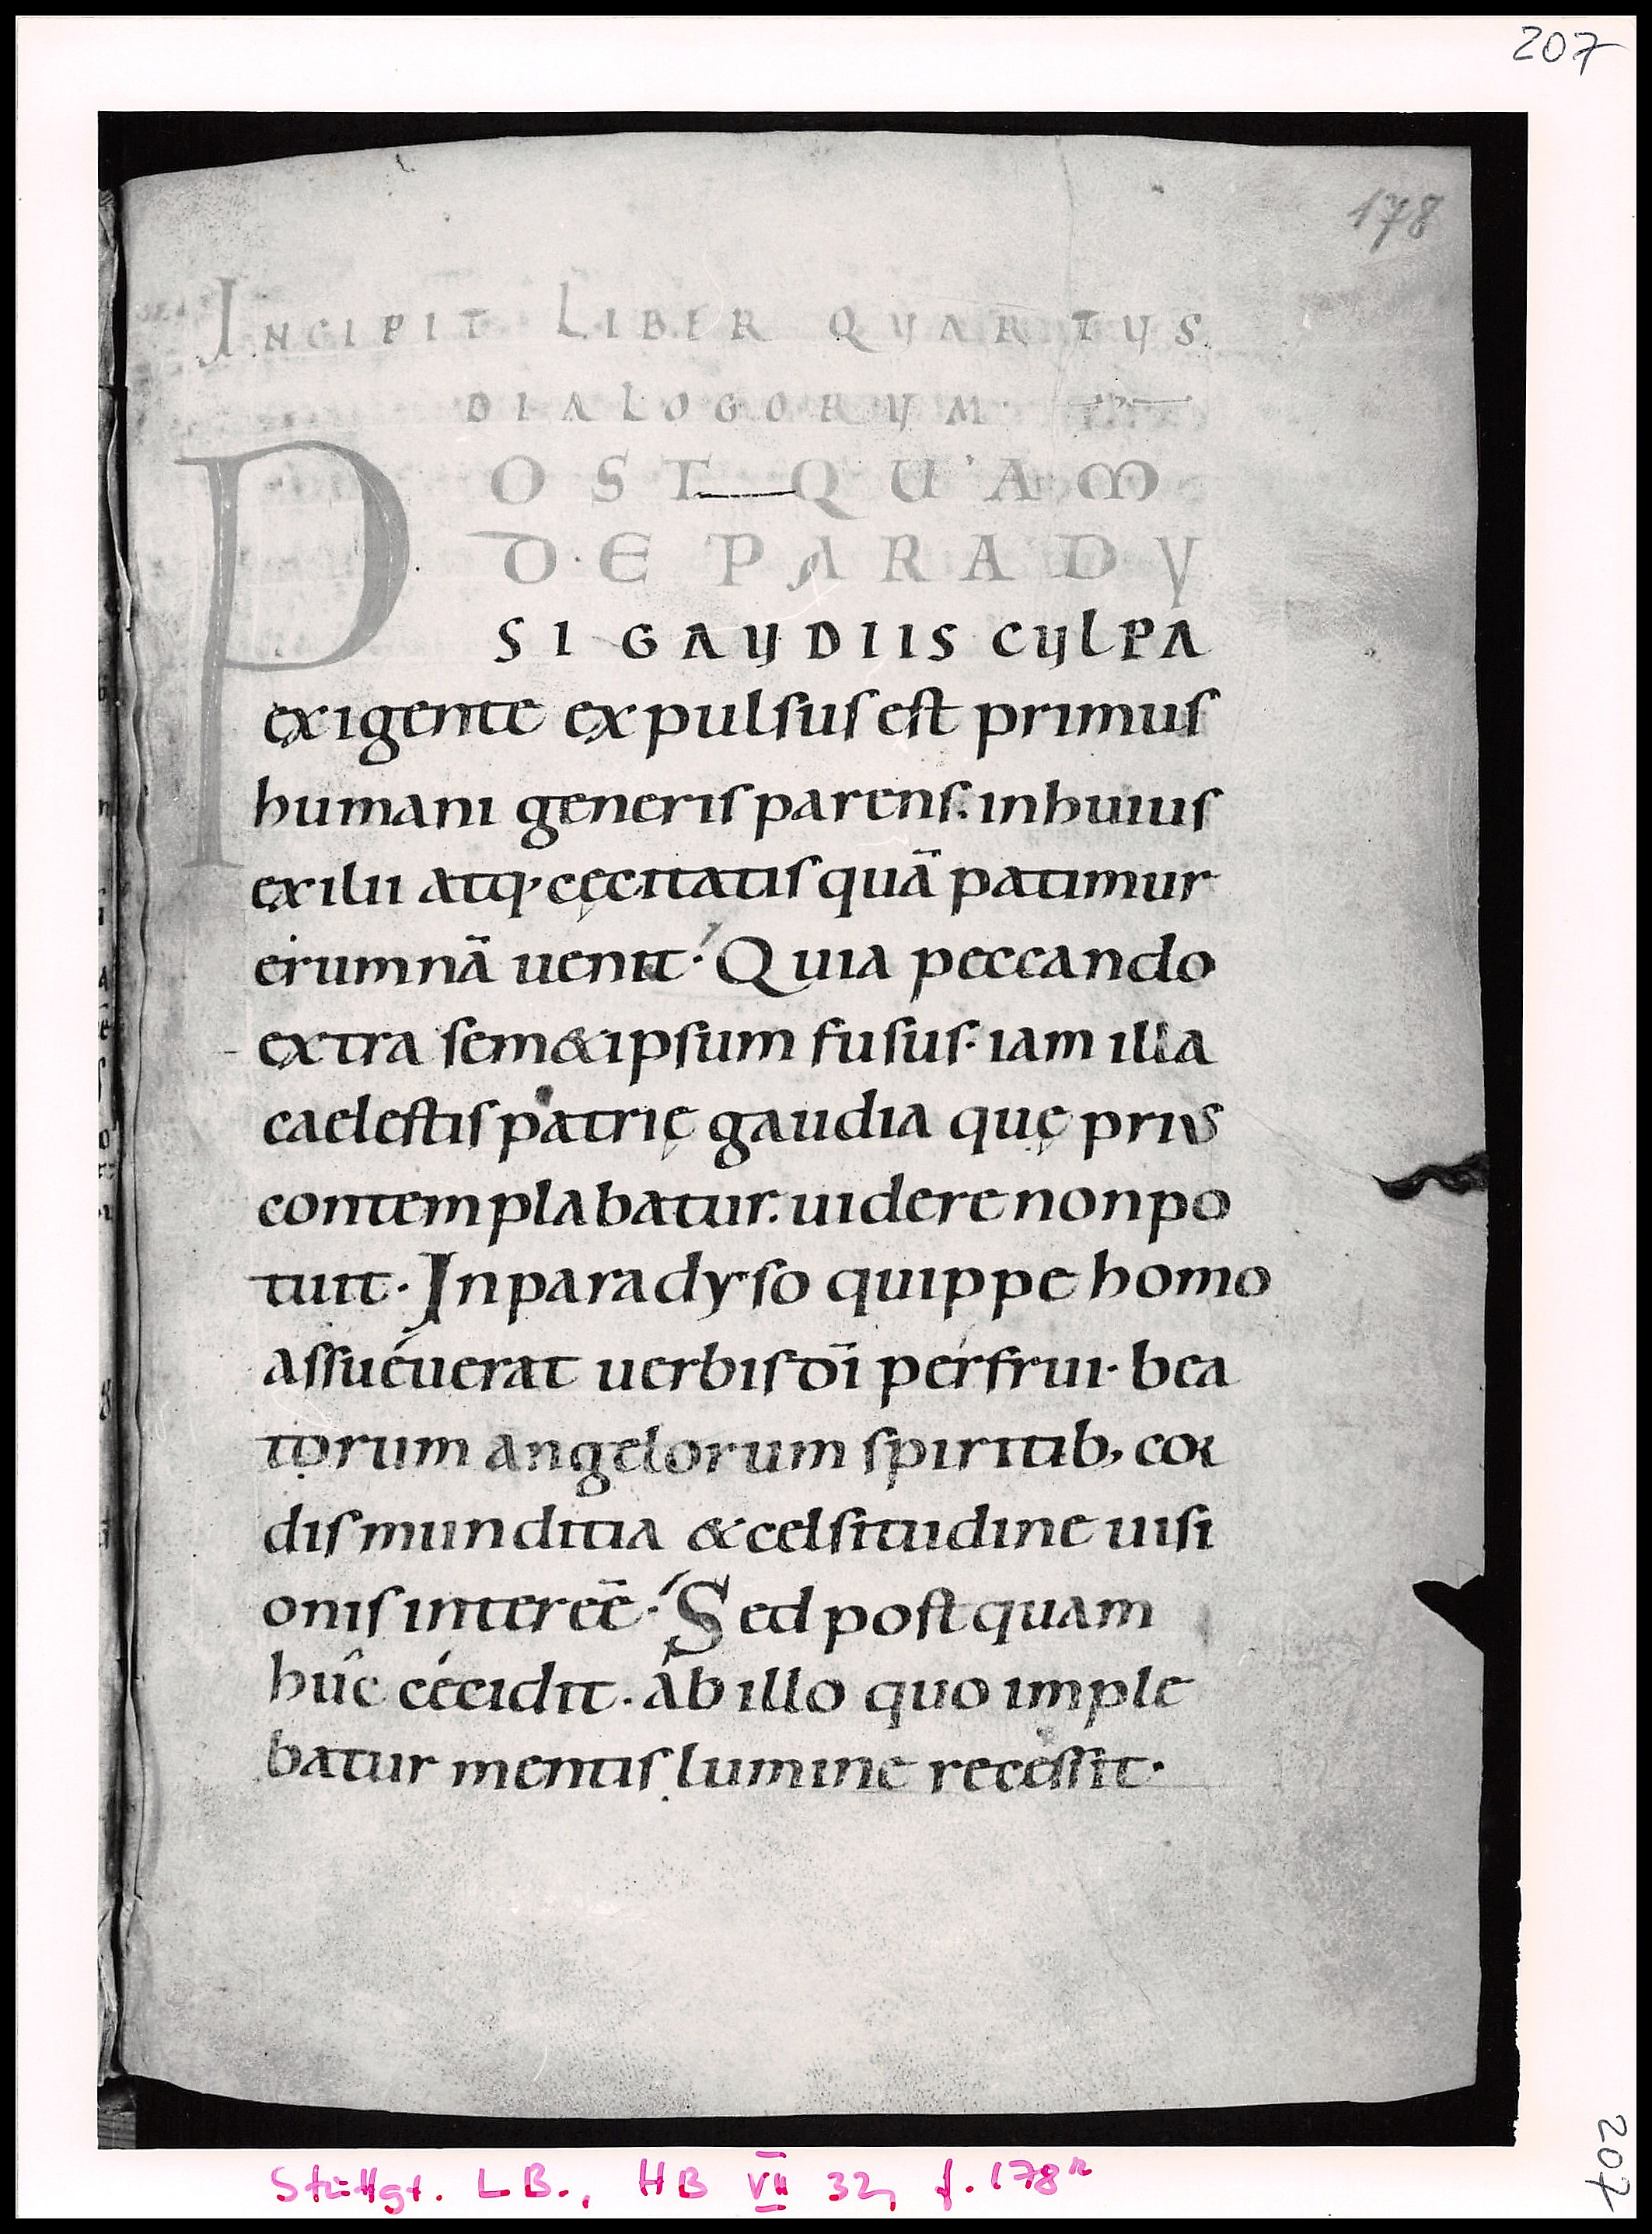 207
178
INCIPIT LIBER QUARTUS
DIALOGORUM
POSTQUAM
DE PARADY
SI GAUDIIS CULPA
exigente expulsus est primus
humani generis parens. inhuius
exilii atq; cęcitatis quā patimur
erumnā uenit. Quia peccando
extra sem&ipsum fusus. iam illa
caelestis patrię gaudia quę prius
contemplabatur. uidere nonpo
tuit. Inparadyso quippe homo
assuéuerat uerbis dī pérfrui. bea
torum angelorum spiritib; cor
dis munditia & celsitudine uisi
onis intereē. Sed postquam
hûc cécidit. áb illo quo imple
batur mentis lumine recessit.
Stuttgt. LB., HB VII 32, f. 178r
207